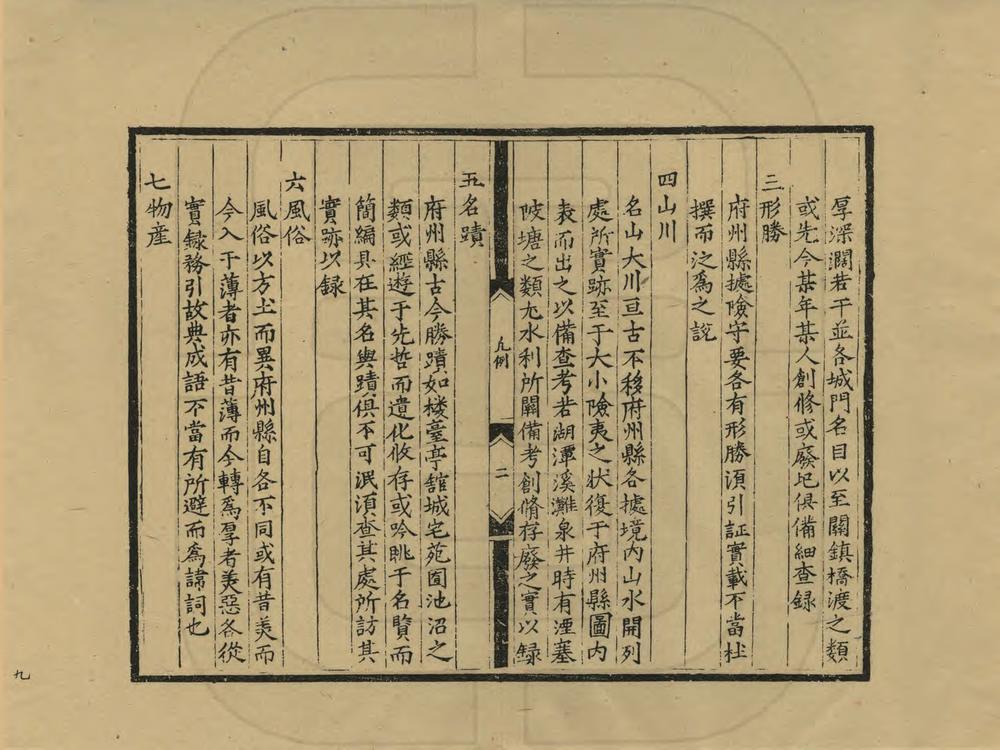 厚深濶若干並各城門名目以至關鎮橋渡之類
或先今某年某人創修或廢圮俱備細查録
三形勝
府州縣㨿險守要各有形勝湏引証實載不當杜
撰而泛為之説
四山川
名山大川亘古不移府州縣各㨿境内山水開列
處所實跡至于大小險夷之状復于府州縣圖内
表而出之以備查考若湖潭溪灘泉井時有湮塞
陂塘之類尤水利所關備考創脩存廢之實以録
凡例
二
五名蹟
府州縣古今勝蹟如楼臺亭舘城宅苑囿池沼之
類或經遊于先哲而遺化攸存或吟眺于名賢而
簡編具在其名與蹟俱不可泯湏查其處所訪其
實跡以録
六風俗
風俗以方土而異府州縣自各不同或有昔美而
今入于薄者亦有昔薄而今轉為厚者美惡各從
實録務引故典成語不當有所避而為諱詞也
七物産
九